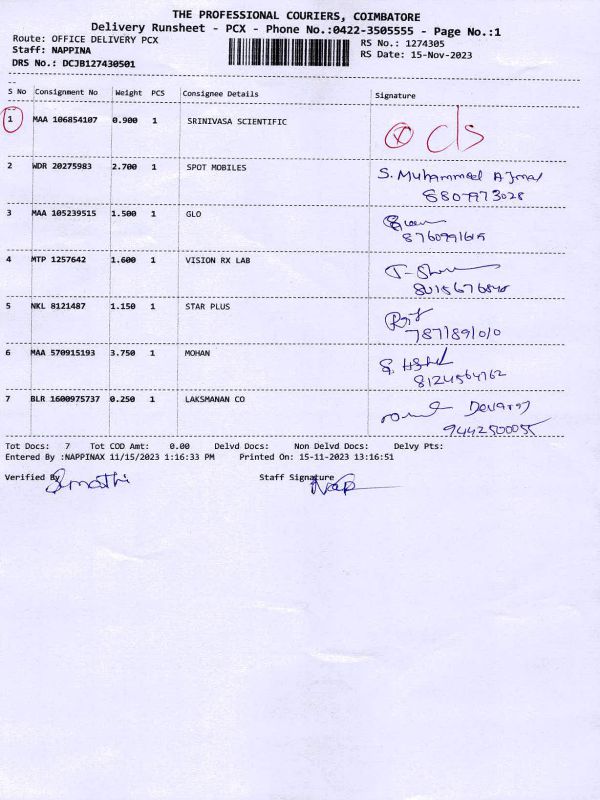 THE PROFESSIONAL COURIERS, COIMBATORE
Delivery Runsheet - PCX - Phone No.:0422-3505555 - Page No.:1
Route: OFFICE DELIVERY PCX
RS No.: 1274305
Staff: NAPPINA
RS Date: 15-Nov-2023
DRS No.: DCJB127430501
S No Consignment No Weight PCS Consignee Details Signature
1 MAA 106854107 0.900 1 SRINIVASA SCIENTIFIC
X C/S
2 WDR 20275983 2.700 1 SPOT MOBILES
S. Muhammed Ajmal
3 MAA 105239515 1.500 1 GLO
4 MTP 1257642 1.600 1 VISION RX LAB
5 NKL 8121487 1.150 1 STAR PLUS
6 MAA 570915193 3.750 1 MOHAN
8124564762
7 BLR 1600975737 0.250 1 LAKSMANAN CO
Devaraj
9442500055
Tot Docs: 7 Tot COD Amt: 0.00 Delvd Docs: Non Delvd Docs: Delvy Pts:
Entered By :NAPPINAX 11/15/2023 1:16:33 PM Printed On: 15-11-2023 13:16:51
Verified By Staff Signature